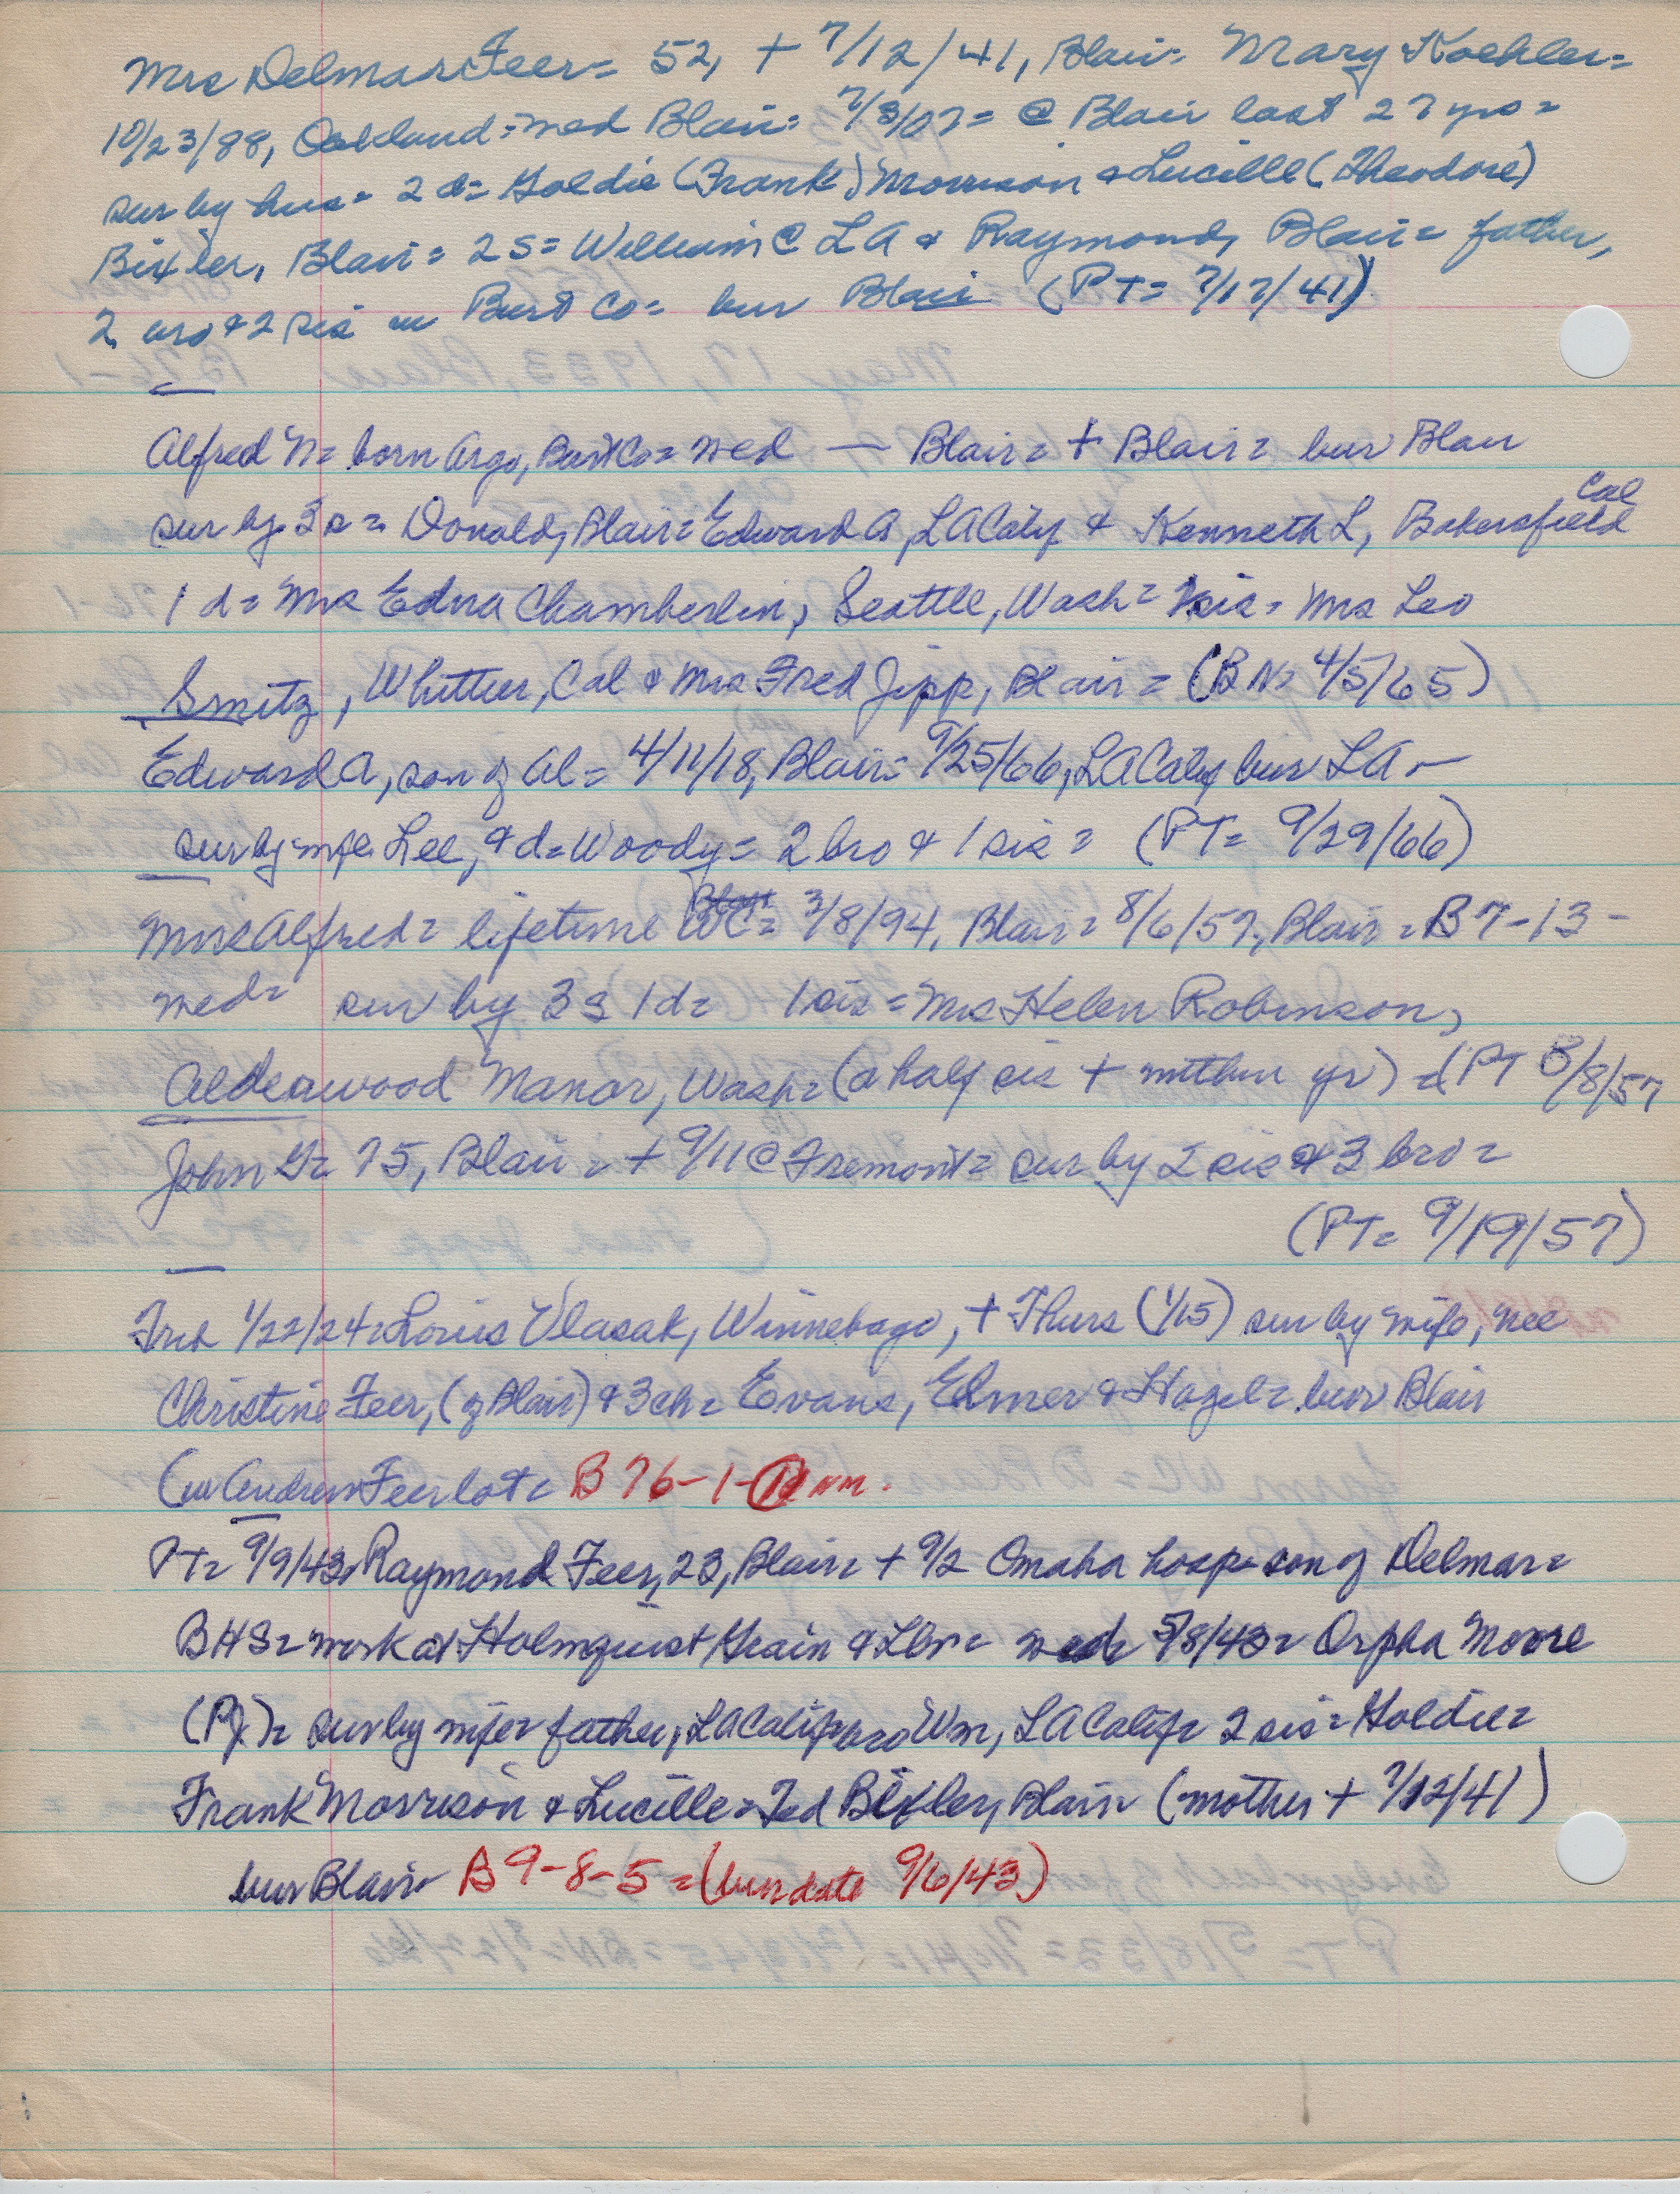 Mrs Delmar Feer= 52, + 7/12/41, Blair= Mary Koehler=
10/23/88, Oakland= med Blair= 7/8/07= @ Blair last 27 yrs=
sur by hus= 2 d= Goldie (Frank) Morrison & Lucille (Theodore)
Bixler, Blair= 2 S= William @ LA & Raymond, Blair= father,
2 bro & 2 sis in Burt Co= bur Blair (PT= 7/17/41)
Alfred N= born Argo, Burt Co= med — Blair= + Blair= bur Blair
sur by 3 s= Donald, Blair= Edward A, LA Calif & Kenneth L, Bakersfield Cal
1 d= Mrs Edna Chamberlin, Seattle, Wash= sis= Mrs Leo
Smitz, Whittier, Cal & Mrs Fred Jipp, Blair= (BN= 4/5/65)
Edward A, son of Al= 4/11/18, Blair= 9/25/66, LA Calif bur LA -
sur by wife Lee, & d= Woody= 2 bro & 1 sis= (PT= 9/29/66)
Mrs Alfred= lifetime WC= 3/8/94, Blair= 8/6/57, Blair= B 7-13-
med= sur by 3 S 1 d= 1 sis= Mrs Helen Robinson,
Alderwood Manor, Wash= (a half sis + within yr) = (PT 8/8/57
John G= 75, Blair= + 9/11 @ Fremont= sur by 2 sis & 3 bro=
(PT= 9/19/57)
Trib 1/22/24= Louis Vlasak, Winnebago, + Thurs (1/15) sur by wife, nee
Christine Feer, (of Blair) & 3 ch= Evans, Elmer & Hazel= bur Blair
(in Andrew Feer lot= B 76-1- nm.
PT= 9/9/43= Raymond Feer, 23, Blair= + 9/2 Omaha hosp= son of Delmar=
BHS= work at Holmquist Grain & Lbr= med= 5/8/43= Orpha Moore
(Pj)= sur by wife= father, LA Calif= bro Wm, LA Calif= 2 sis= Goldie=
Frank Morrison & Lucille= Ted Bixler, Blair= (mother + 7/12/41)
bur Blair= B 9-8-5= (bur date 9/6/43)